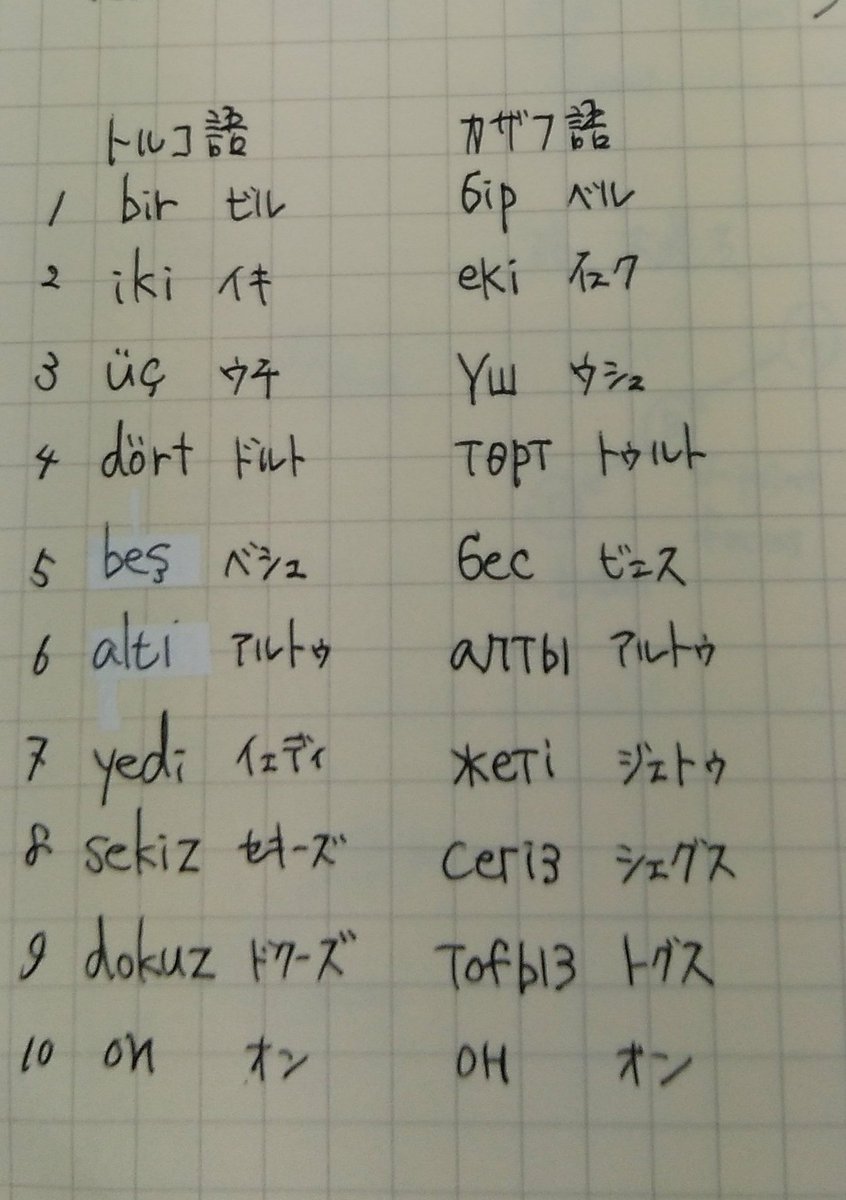 トルコ語 カザフ語
1 bir ビル бір ベル
2 iki イキ екі イェク
3 üç ウチ Үш ウシュ
4 dört ドルト төрт トゥルト
5 beş ベシュ бес ビェス
6 alti アルトゥ алты アルトゥ
7 yedi イェディ жеті ジェトゥ
8 sekiz セキーズ сегіз シェグス
9 dokuz ドクーズ тоғыз トグス
10 on オン он オン